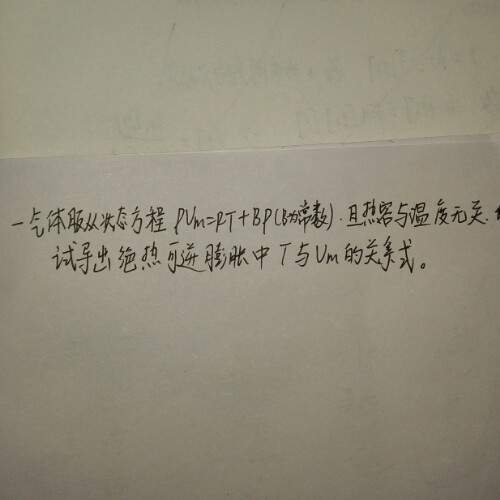 一气体服从状态方程 PVm=RT+BP(B为常数).且热容与温度无关.
试导出绝热可逆膨胀中T与Vm的关系式。